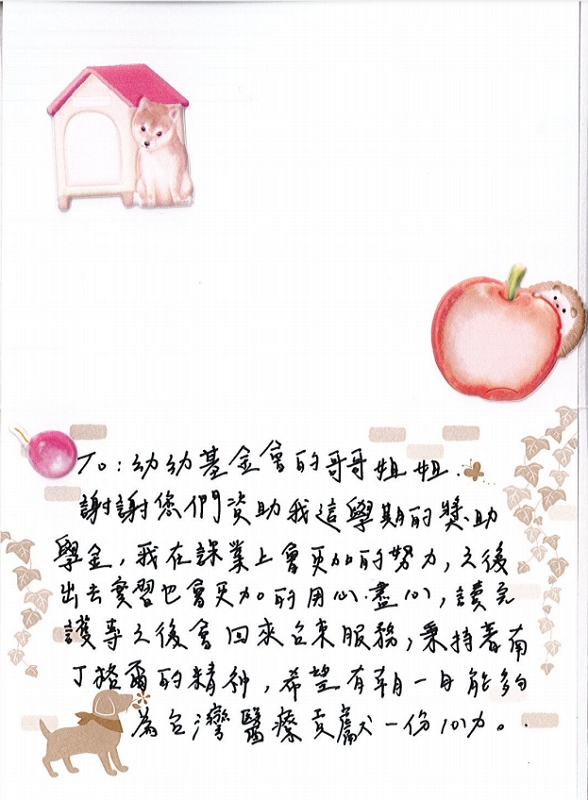 To：幼幼基金會的哥哥姐姐.
謝謝您們資助我這學期的獎助
學金，我在課業上會更加的努力，之後
出去實習也會更加的用心.盡心，讀完
護專之後會回來台東服務，秉持著南
丁格爾的精神，希望有朝一日能夠
為台灣醫療貢獻一份心力。